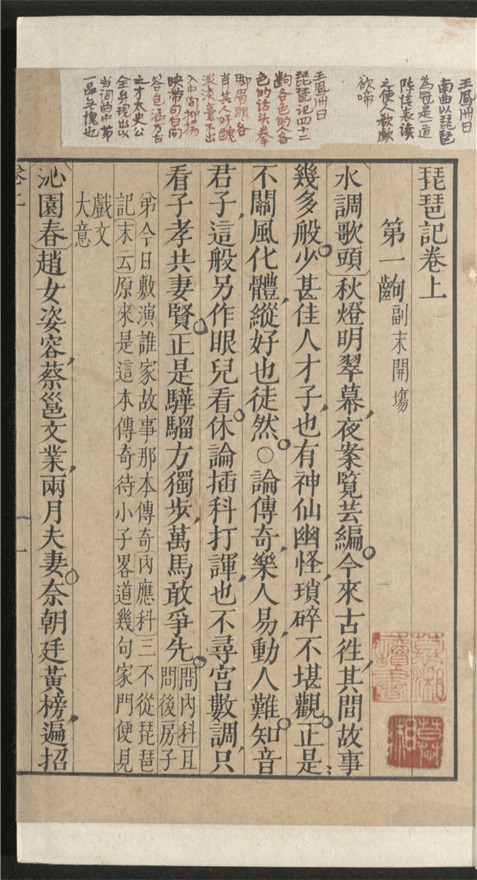 王鳳洲曰
南曲以琵琶
為冠是一道
陳情表讀
之使人欷歔
欲啼
王鳳洲曰
琵琶記四十二
齣各色的人各
色的話頭拳
腳眉眼各
肖其人好醜
濃淡毫不出
入中间抑揚
映帶句白问
答包涵万古
之才太史公
全身現出以
当詞曲中第
一品无愧也
琵琶記卷上
第一齣副末開塲
水調歌頭〕秋燈明翠幕，夜案覽芸編。今來古徃，其間故事
幾多般。少甚佳人才子，也有神仙幽怪，瑣碎不堪觀。正是
不關風化體，縱好也徒然。○論傳奇，樂人易，動人難。知音
君子，這般另作眼兒看。休論插科打諢，也不尋宮數調，只
看子孝共妻賢。正是驊騮方獨步，萬馬敢爭先。〔問內科〕且
問後房子
弟今日敷演誰家故事那本傳奇〔內應科〕三不從琵琶
記〔末云〕原來是這本傳奇待小子畧道幾句家門便見
戲文
大意
沁園春〕趙女姿容，蔡邕文業，兩月夫妻。奈朝廷黃榜，遍招
慕湘
藏書
慕湘